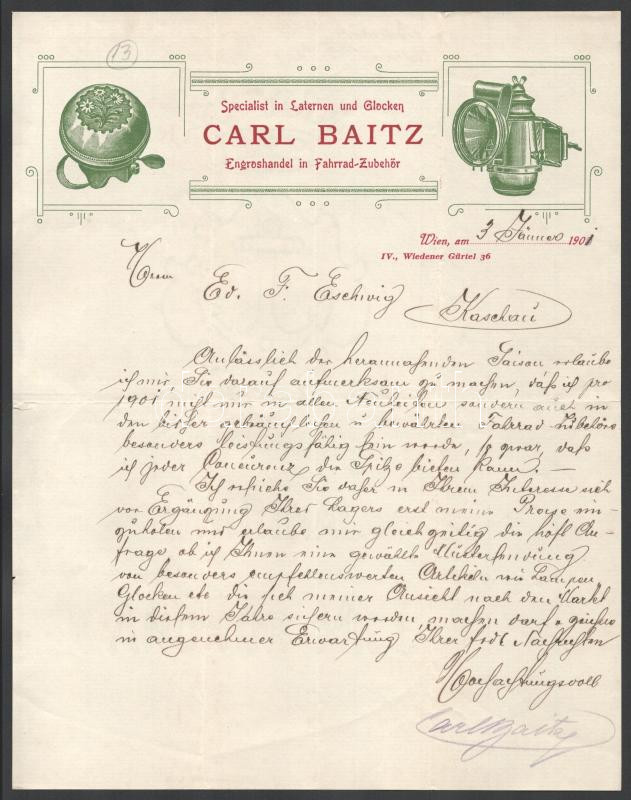 13
Specialist in Laternen und Glocken
CARL BAITZ
Engroshandel in Fahrrad-Zubehör
Wien, am 3 Jänner 1901
IV., Wiedener Gürtel 36
Herrn
Ed. F. Eschwig
Kaschau
Anlässlich der herannahenden Saison erlaube
ich mir, Sie darauf aufmerksam zu machen, daß ich pro
1901 nicht nur in allen Neuheiten sondern auch in
den bisher gebräuchlichen u bewährten Fahrrad Zubehöre
besonders leistungsfähig sein werde, so zwar, daß
ich jeder Concurrenz die Spitze bieten kann. —
Ich ersuche Sie daher in Ihrem Interesse sich
vor Ergänzung Ihres Lagers erst meine Preise ein-
zuholen und erlaube mir gleichzeitig die höfl An-
frage ob ich Ihnen eine gewählte Mustersendung
von besonders empfehlenswerten Artikeln wie Lampen
Glocken etc die sich meiner Ansicht nach den Markt
in diesem Jahre sichern werden, machen darf u zeichne
in angenehmer Erwartung Ihrer Nachrichten
Hochachtungsvoll
Carl Baitz